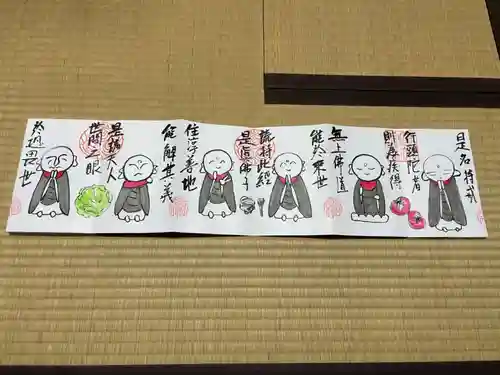 是名持戒
行頭陀者
則為疾得
無上佛道
能於来世
読持此経
是真佛子
住淳善地
能解其義
是諸天人
世間之眼
於恐畏世